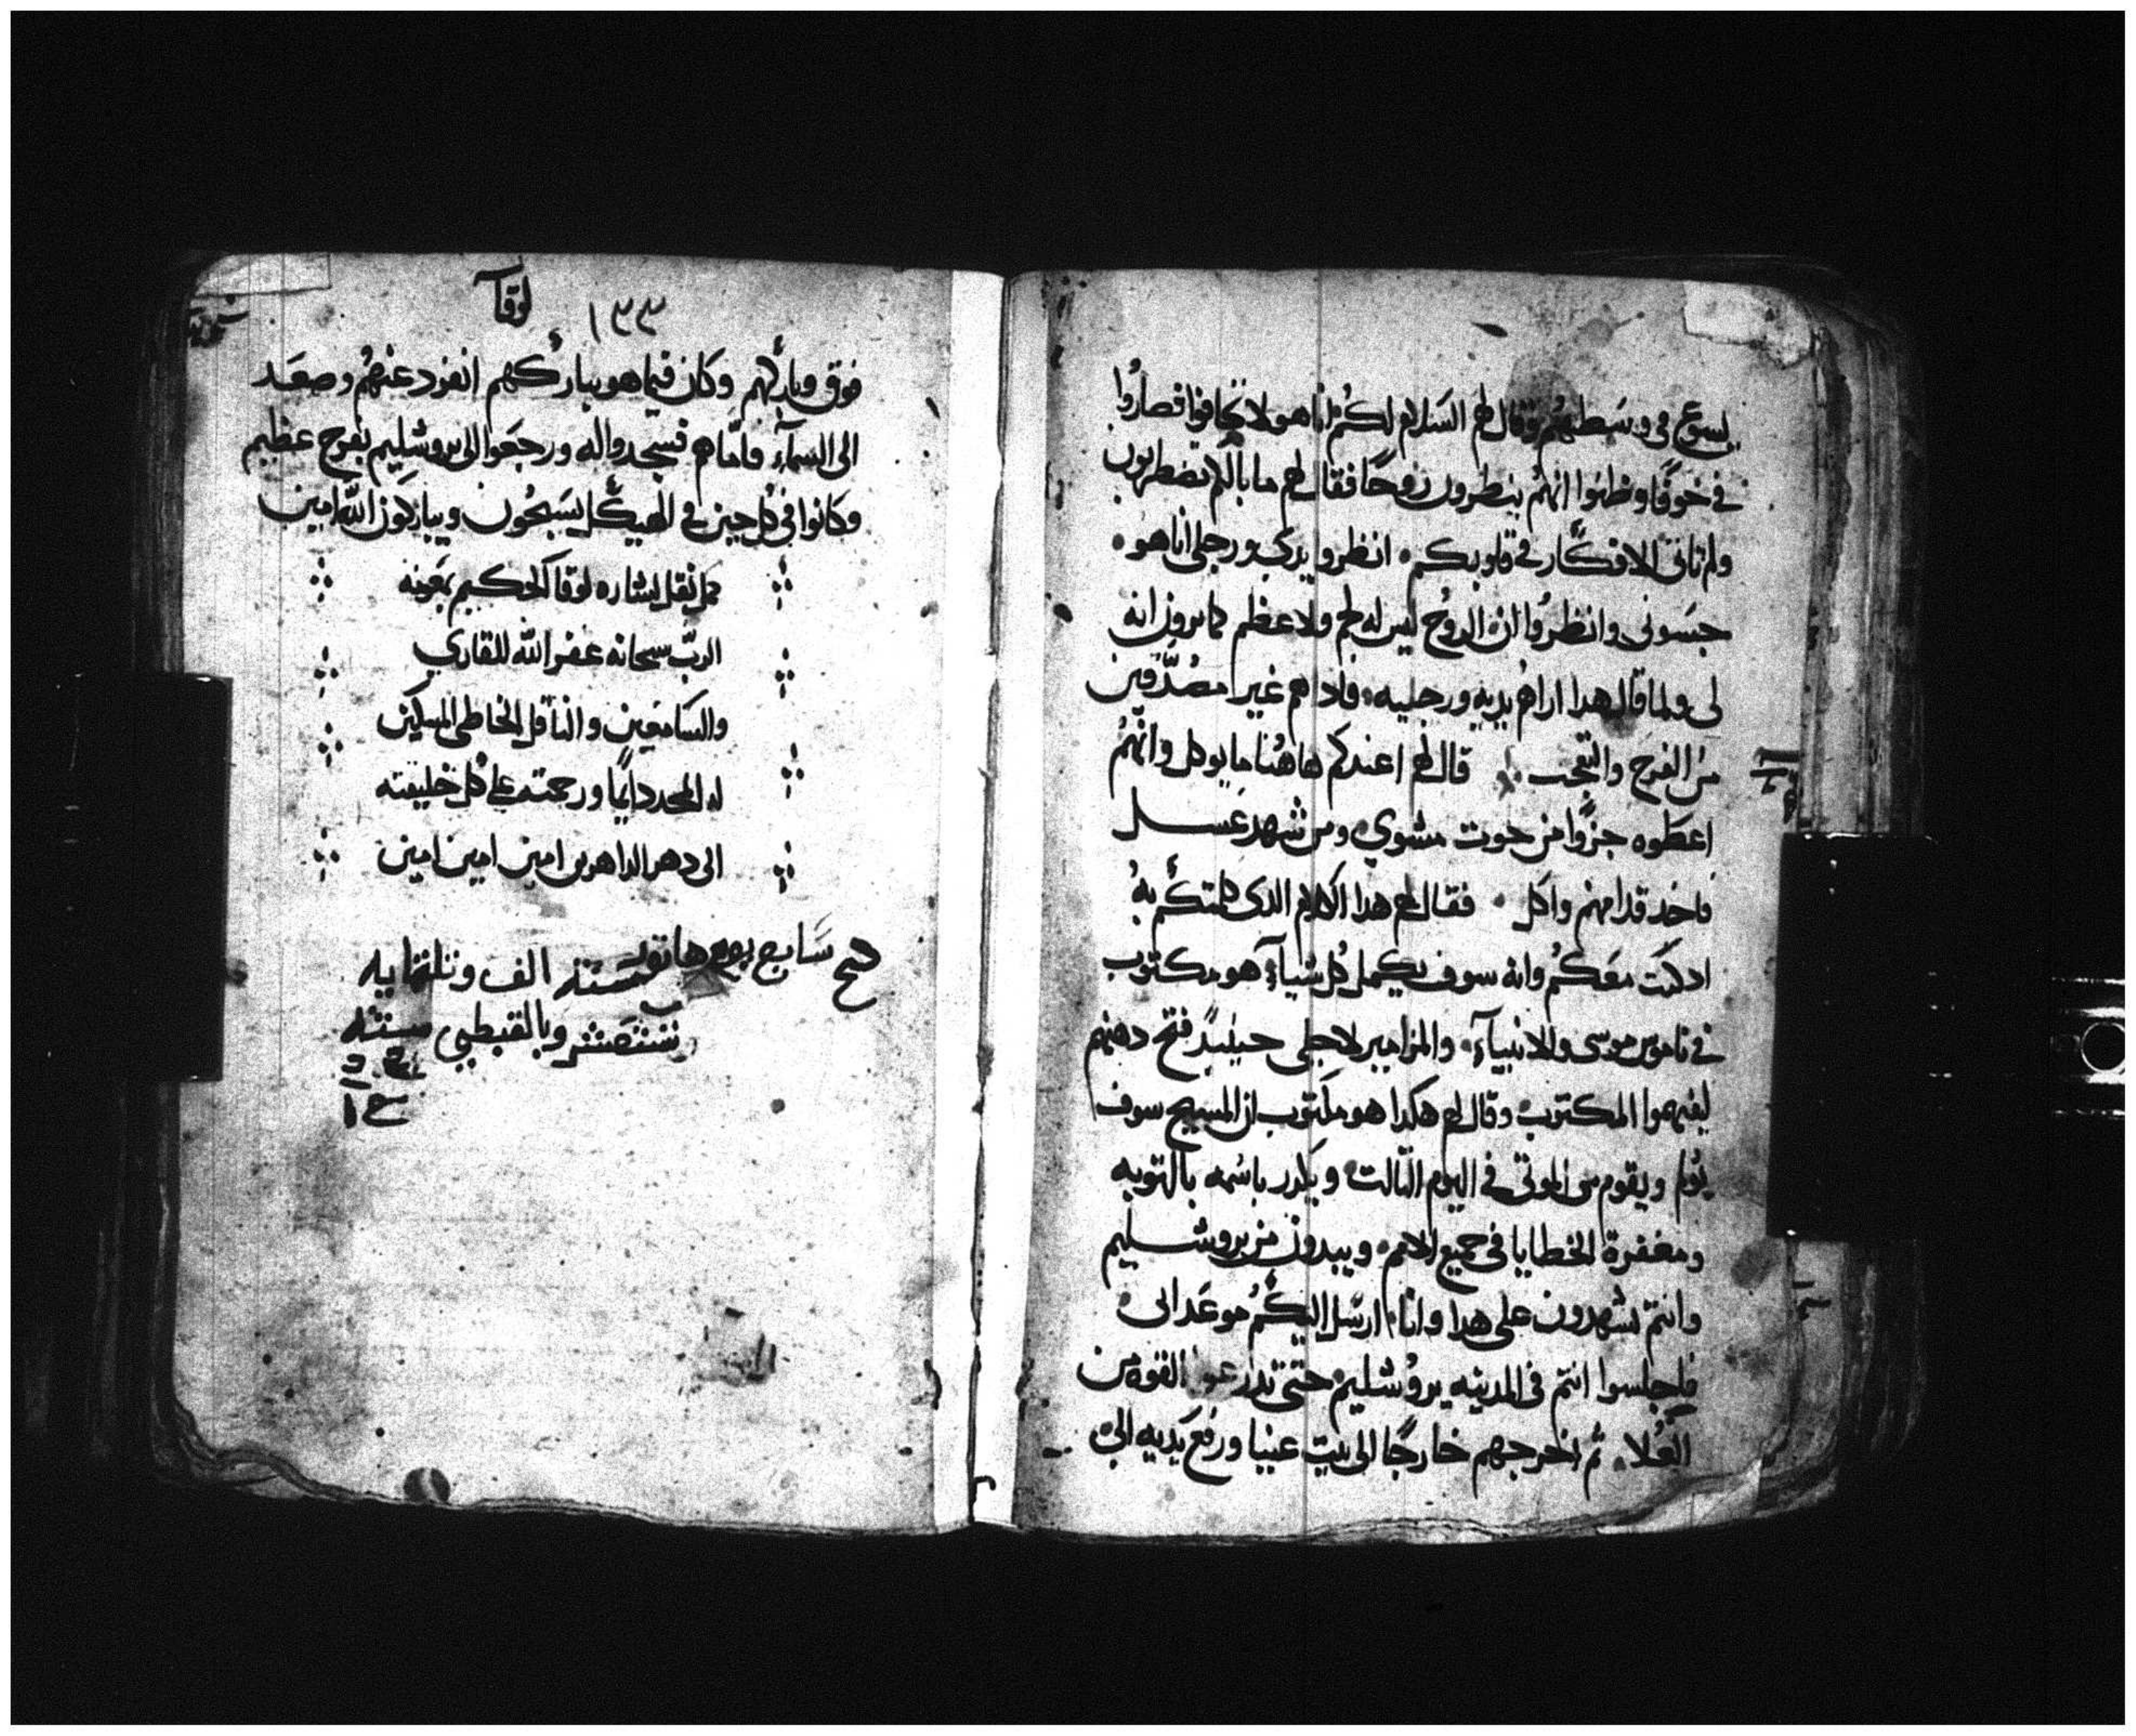 يسوع في وسطهم وقال لهم السلام لكم انا هو لا تخافوا فصاروا
في خوفًا وظنوا انهم ينظرون روحًا فقال لهم ما بالكم تضطربون
ولم تاتي الافكار في قلوبكم انظروا يدي ورجلي انا هو
جسوني وانظروا ان الروح ليس له لحم ولا عظم كما ترون انه
لي ولما قال هدا اراهم يديه ورجليه فاد هم غير مصدقين
من الفرح والتعجب قال لهم اعندكم هاهنا ما يوكل وانهم
اعطوه جزوًا من حوت مشوي ومن شهد عسل
فاخد قدامهم واكل فقال لهم هدا الكلام الدي كلمتكم به
اد كنت معكم وانه سوف يكمل كل شيآء هو مكتوب
في ناموس موسى والانبيآء والمزامير لاجلي حينيدٍ فتح دهنهم
ليفهموا المكتوب وقال لهم هكدا هو مكتوب ان المسيح سوف
يولم ويقوم من الموتى في اليوم التالت ويكرر باسمه بالتوبه
ومغفرة الخطايا في جميع الامم ويبدون من يروشليم
وانتم تشهدون على هدا وانا ارسل اليكم موعد ابي
فاجلسوا انتم في المدينه يروشليم حتى تدرعوا القوه من
العُلا ثم اخرجهم خارجًا الى بيت عنيا ورفع يديه الى
لوقا
١٣٣
فوق وباركهم وكان فيما هو يباركهم انفرد عنهم وصعد
الى السمآء فاما هم فسجدوا له ورجعوا الى يروشليم بفرح عظيم
وكانوا في كل حين في الهيكل يسبحون ويباركون الله امين
كمل نقل بشاره لوقا الحكيم بمعونه
الرب سبحانه غفر الله للقاري
والسامعين والناقل الخاطي المسكين
له المجد دايمًا ورحمته على كل خليقته
الى دهر الداهرين امين امين امين
سابع يوم هاتور سنة الف وتلتمايه
وبالقبطي سنته